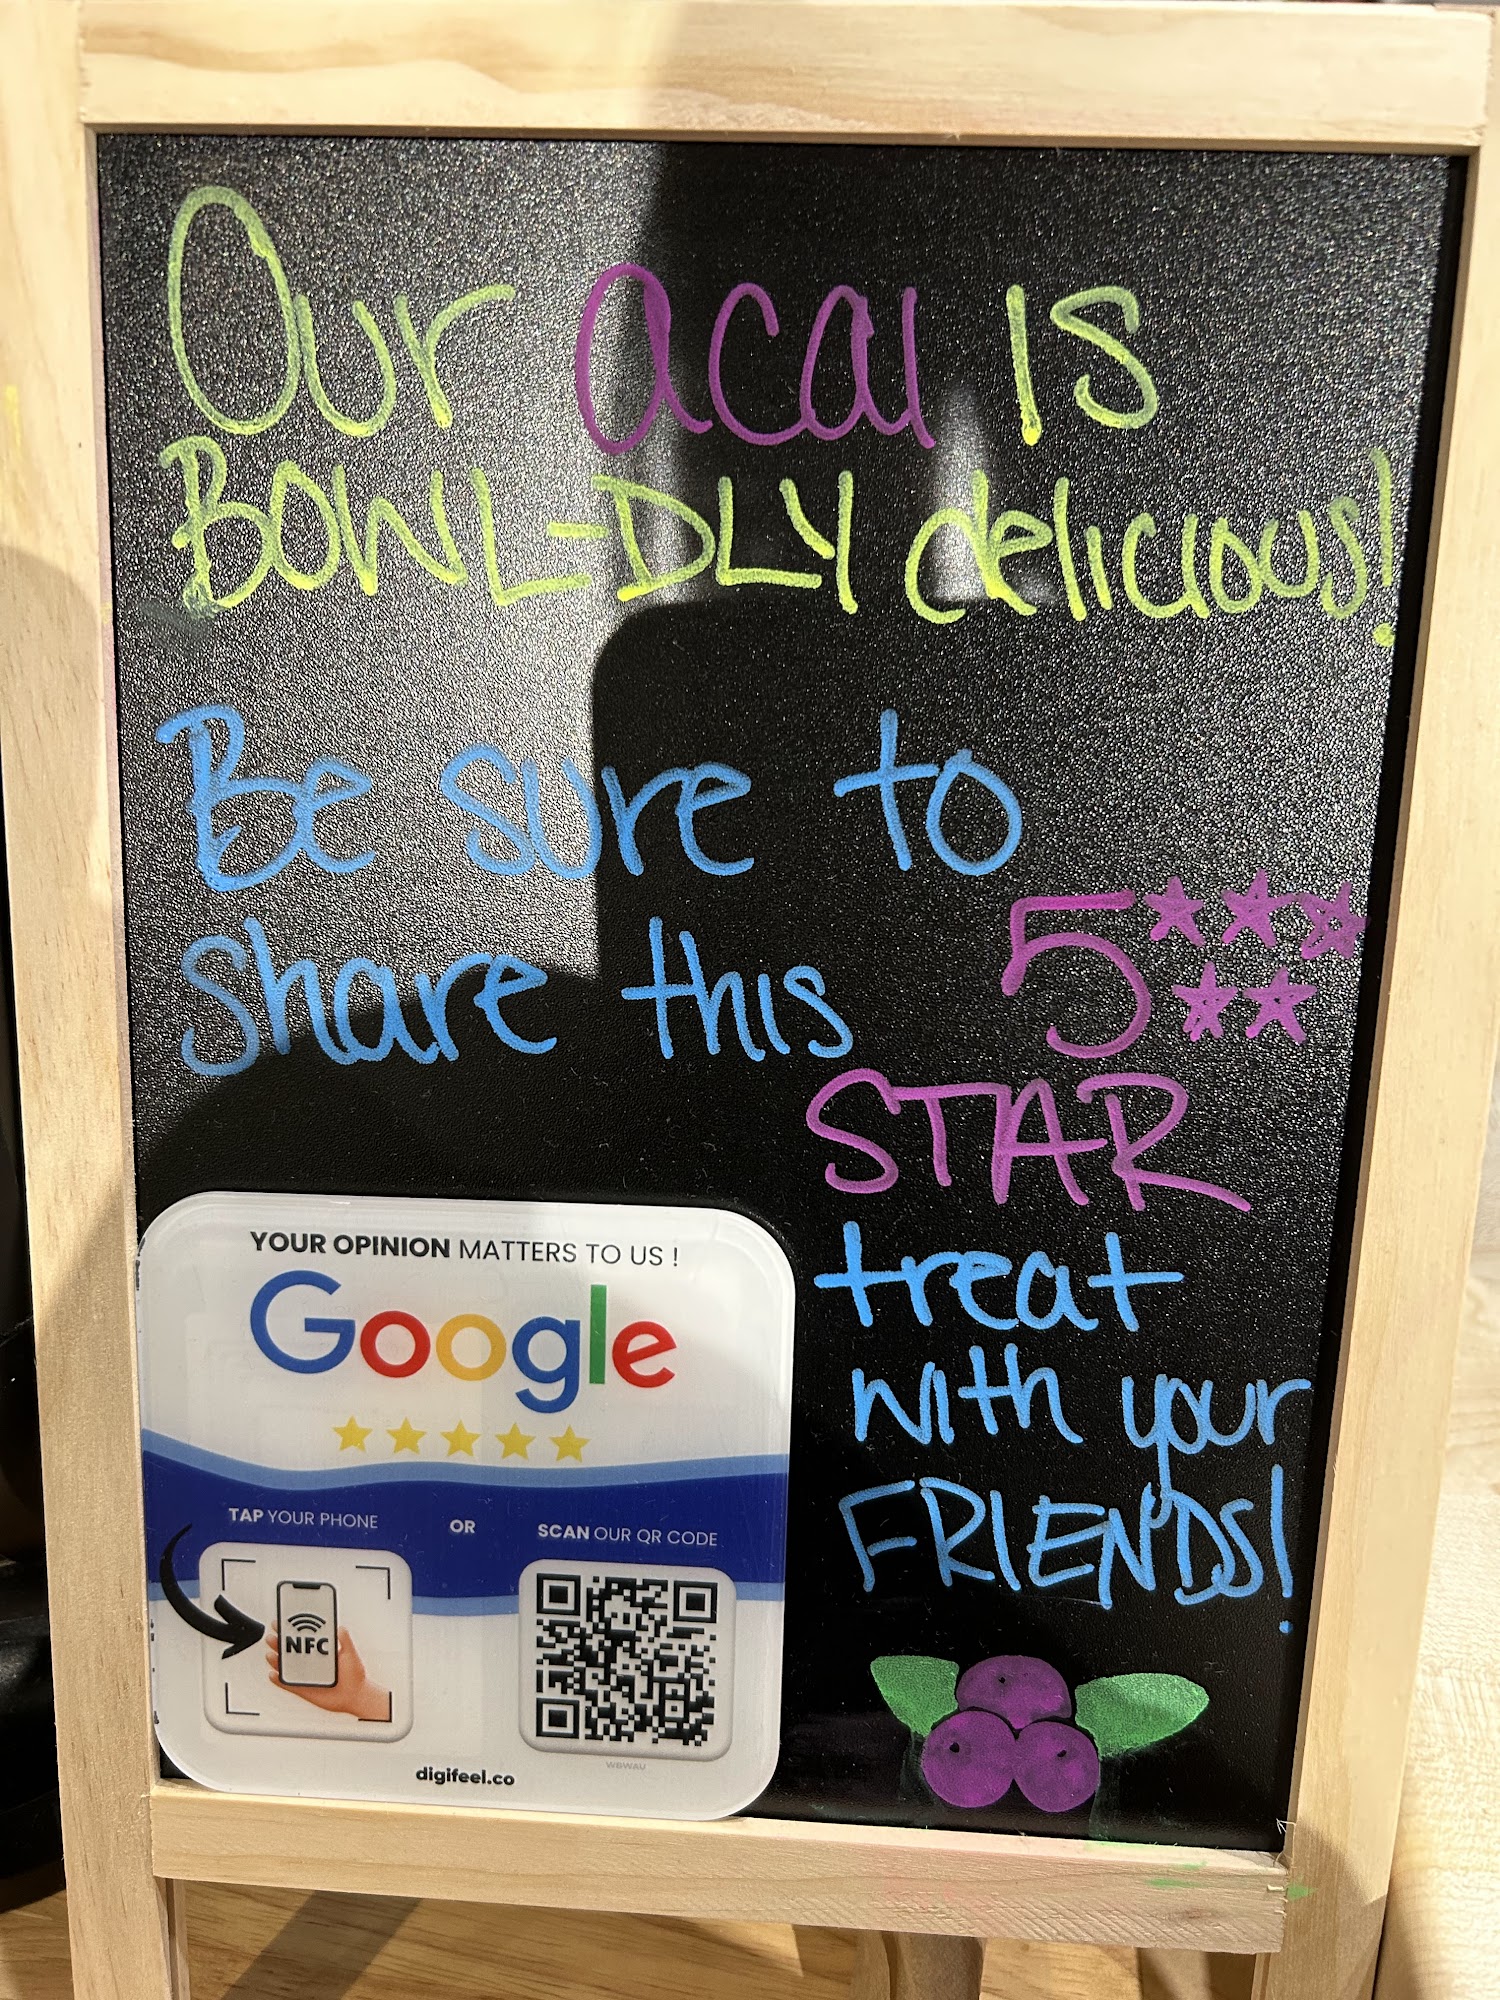 Our acai is
BOWL-DLY delicious!
Be sure to
share this 5
STAR
treat
with your
FRIENDS!
YOUR OPINION MATTERS TO US !
Google
TAP YOUR PHONE OR SCAN OUR QR CODE
NFC
WBWAU
digifeel.co